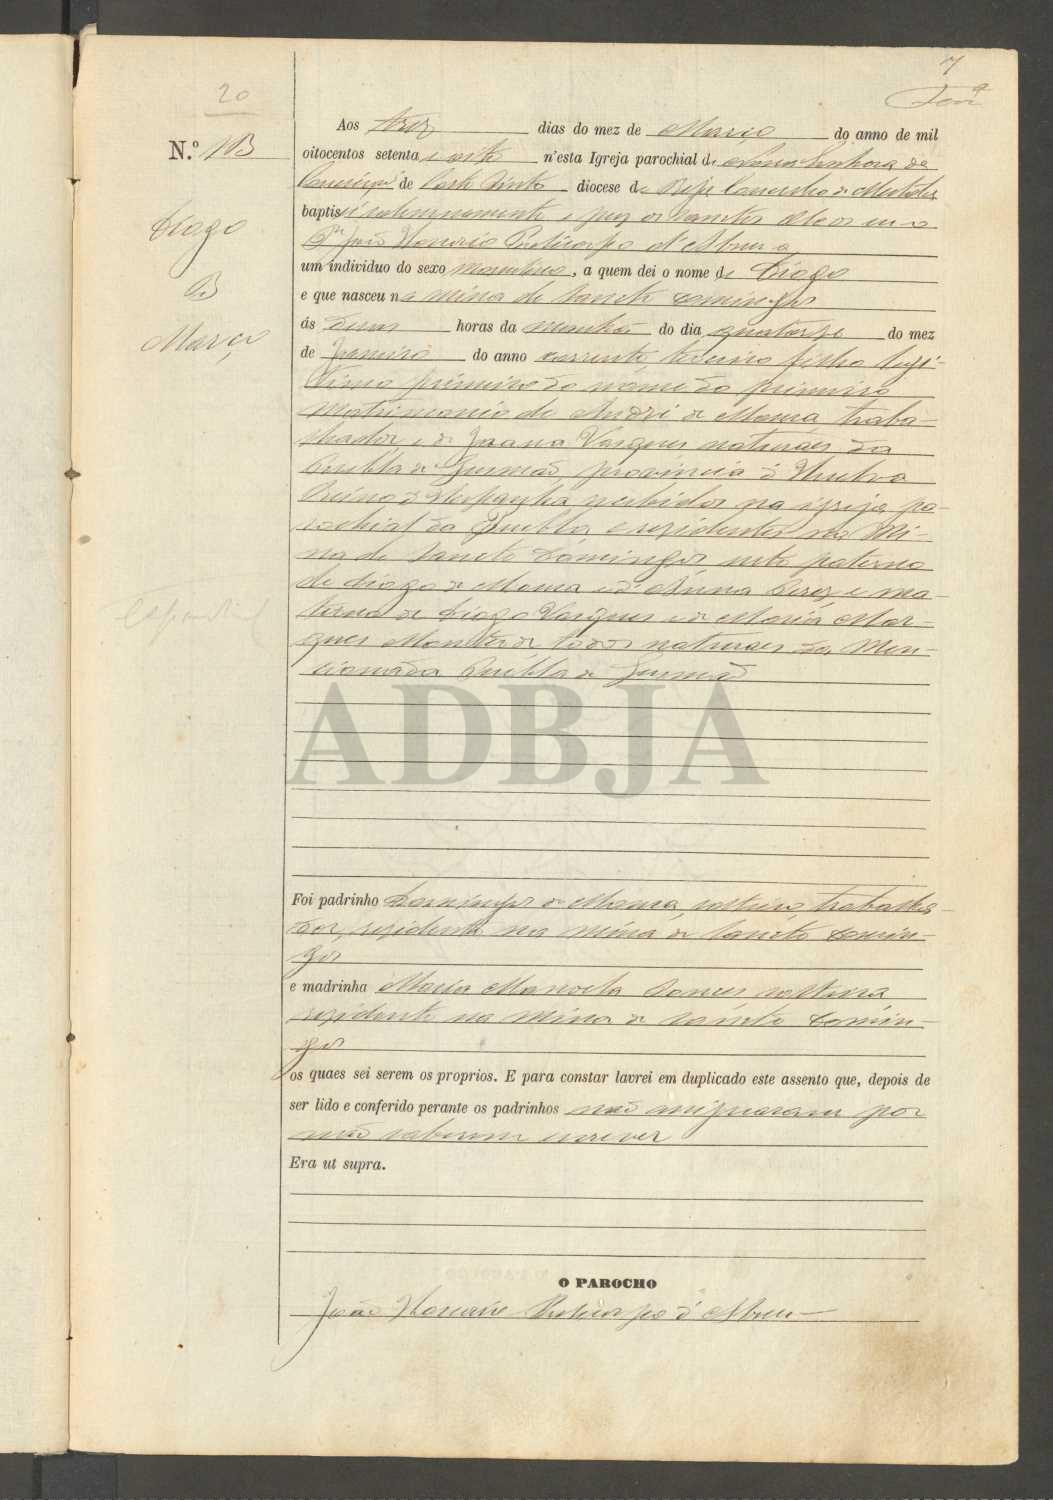 7
20
Aos trez dias do mez de Março do anno de mil
N.º 13
oitocentos setenta e oito n'esta Igreja parochial de Nossa Senhora da
Conceição de Corte Pinto diocese de Beja Concelho de Mertola
baptisei solemnemente e puz os sanctos oleos eu o
João Honorio Policarpo d'Abreu a
Diogo
um individuo do sexo masculino, a quem dei o nome de Diogo
e que nasceu na mina de Sancto Domingos
ás duas horas da manhã do dia quatorze do mez
Março
de Janeiro do anno corrente terceiro filho legi-
timo primeiro do nome do primeiro
matrimonio de André de Moura traba-
lhador e de Joana Vasques naturaes da
Puebla de Gusmão provincia d'Huelva
Reino d'Hespanha recebidos na igreja pa-
rochial da Puebla e rezidentes na Mi-
na de Sancto Domingos, neto paterno
de Diogo de Moura e d'Anna Perez e ma-
terno de Diogo Vasques e de Maria Mar-
ques de todos naturaes da Men-
cionada Puebla de Gusmão
Espanhol
ADBJA
Foi padrinho Domingos de Moura, solteiro, trabalha-
dor, rezidente na mina de Sancto Domin-
gos
e madrinha Maria Manoela solteira
rezidente na mina de Sancto Domin-
gos
os quaes sei serem os proprios. E para constar lavrei em duplicado este assento que, depois de
ser lido e conferido perante os padrinhos não assignaram por
não saberem escrever
Era ut supra.
O PAROCHO
João Honorio Policarpo d'Abreu